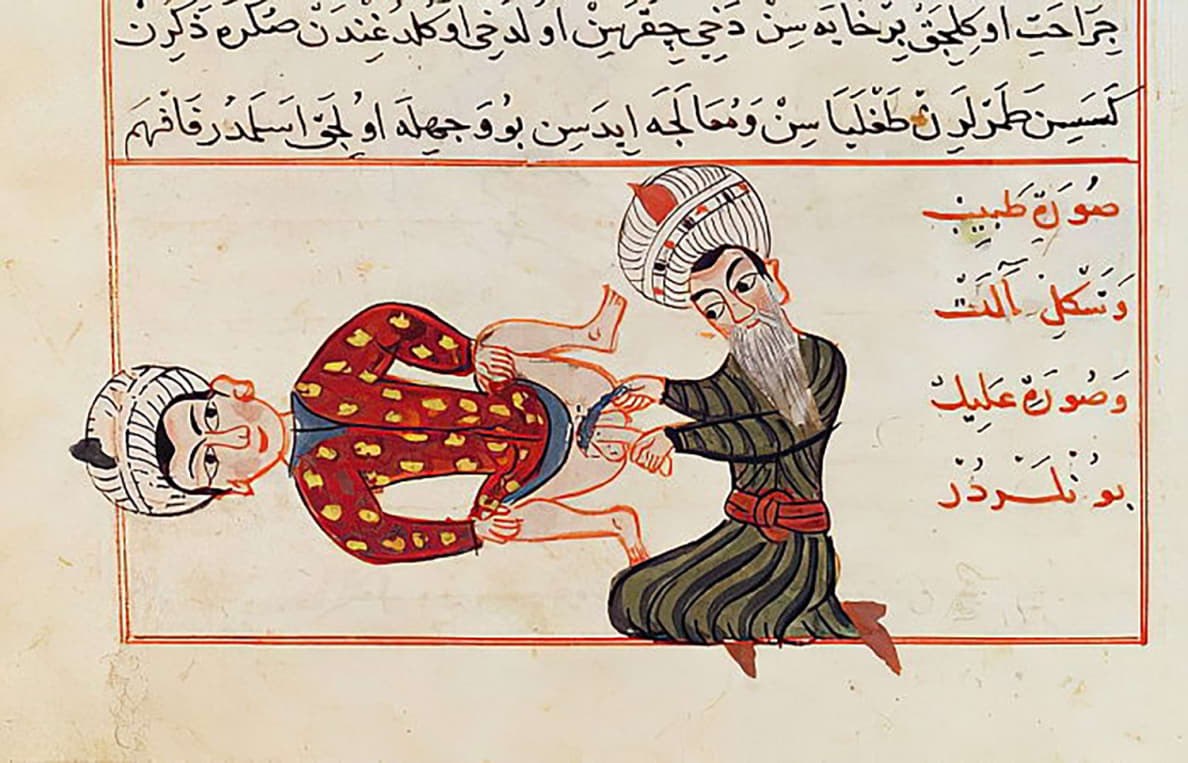 جَرَاحَتْ اوُكِلجَقْ بِرْخَايَه سِنْ دَخِي چِقَرَسِنْ اوُلْدَخِى اوُكُلدُغِنْدَنْ صُكرَه ذَكَرِنْ
كَسَسِنْ طَمَرْلَرِنْ طَغْلَيَاسِنْ وَمُعَالَجَه اِيدَسِنْ بُووَجهِلَه اوُلِجَقْ اسَلمَدُرْ فَافْهَمْ
صُورَةِ طَبِيبْ
وَشَكلِ آلَتْ
وَصُورَةِ عَلِيلْ
بُونْلَرْدُرْ